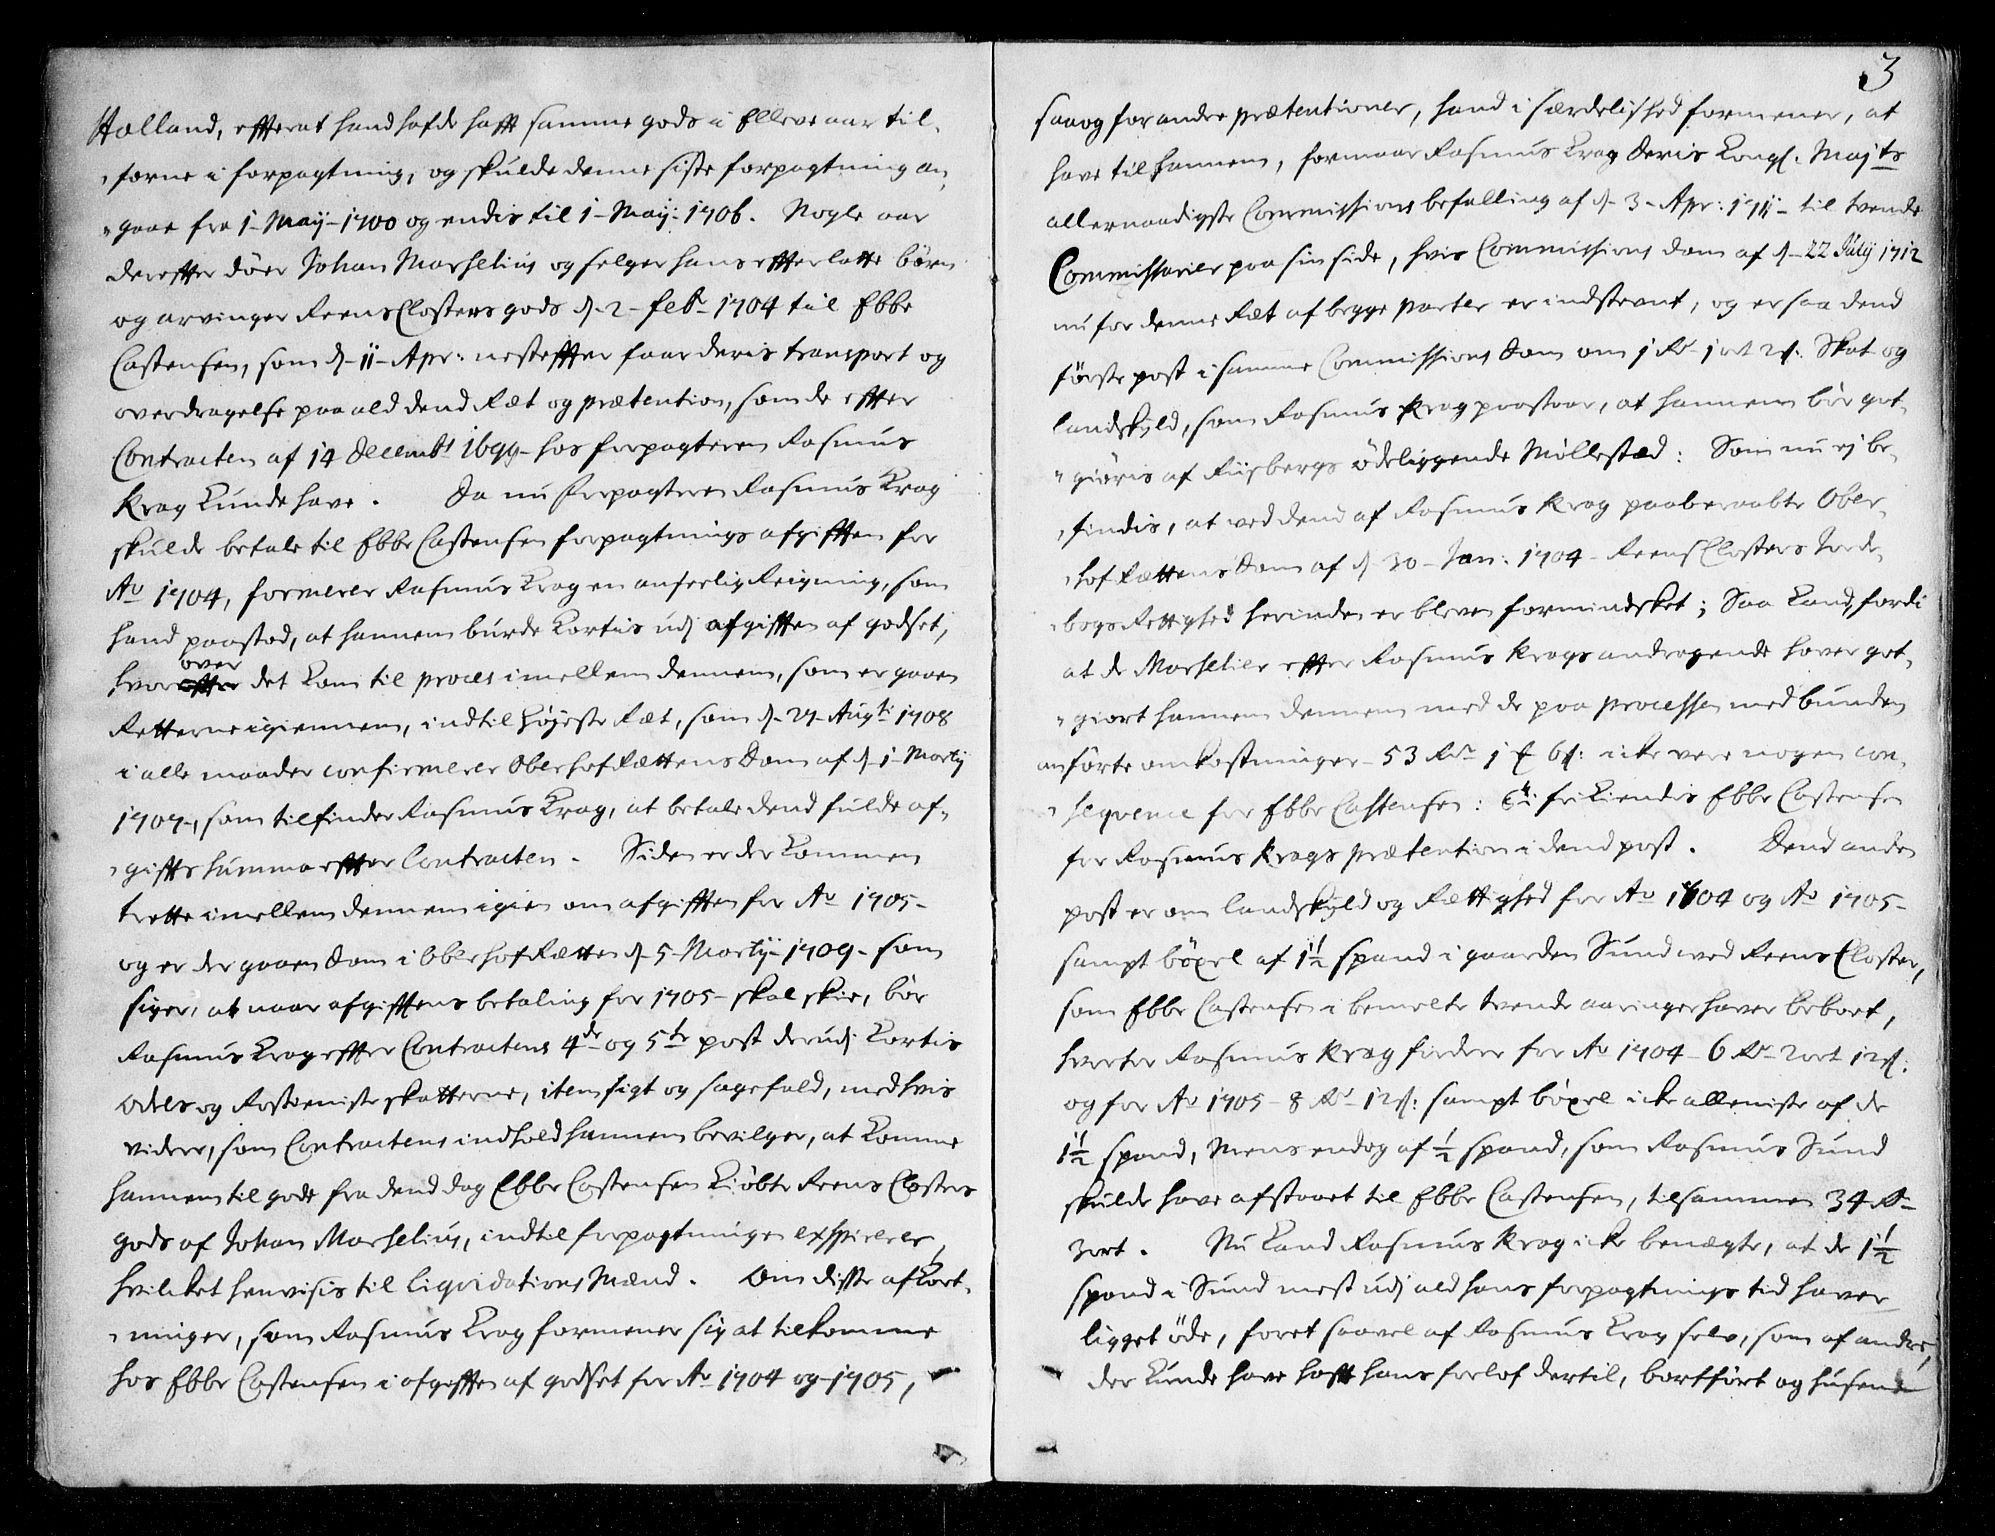 Holland, effterat hand hafde hafft samme gods i Elleve aar til,
forne i forpagtning, og skulde denne siste forpagtning an,
gaae fra 1 Maij 1700 og endis til 1 Maij 1706. Nogle aar
dereffter döer Johan Marselius og selger hans effterlatte börn
og arvinger Reens Closters gods d. 2 febr 1704 til Ebbe
Castensen, som d. 11 Apr: nesteffter faar deris transport og
overdragelse paa ald dend Ræt og prætention, som de effter
Contracten af 14 Decembr 1699 hos forpagteren Rasmus
Krag kunde have. Da nu forpagteren Rasmus Krag
skulde betale til Ebbe Castensen forpagtnings afgifften for
Ao 1704, formerer Rasmus Krag en anseelig Reigning, som
hand paastod, at hannem burde kortis udj afgifften af godset,
hvor over det kom til proces imellem dennem, som er gaaen
Retterne igiennem, indtil höjeste Ræt, som d. 27 Augti 1708
i alle maader confirmerer OberhofRættens Dom af d. 1 Martij
1707, som tilfinder Rasmus Krag, at betale dend fulde af,
giffts summa effter Contracten. Siden er der kommen
trette imellem dennem igien om afgifften for Ao 1705
og er der gaaen Dom i OberhofRætten d. 5 Martij 1709 som
siger, at naar afgifftens betaling for 1705 skal skie, bör
Rasmus Krag effter Contractens 4de og 5te post derudj kortis
odels og Rostieniste skatterne, item sigt og sagefald, med hvis
videre, som Contractens indhold hannem bevilger, at komme
hannem til gode fra dend dag Ebbe Castensen kiöbte Reens Closters
gods af Johan Marselius, indtil forpagtningen exspirerer,
hvilcket henvisis til liqvidations Mænd. Om disse afkort,
ninger, som Rasmus Krag formener sig at tilkomme
hos Ebbe Castensen i afgifften af godset for Ao 1704 og 1705,
3
saa og for andre prætentioner, hand i særdelished formener, at
have til hannem, formaar Rasmus Krag Deris Kongl. Majts
allernaadigste Commissions befalling af d. 3 Apr: 1711 til tvende
Commissarier paa sin side, hvis Commissions dom af d. 22 Julij 1712
nu for denne Ræt af begge parter er indstevnt, og er saa dend
förste post i samme Commissions Dom om 1 Rd 1 ort 2 s: Skat og
landskyld, som Rasmus Krag paastaar, at hannem bör got,
giöris af Riisbergs ödeliggende Möllestæd: Som nu ej be,
findis, at ved dend af Rasmus Krag paaberaabte Ober,
hofRættens Dom af d. 30 Jan: 1704 Reens Closters Jorde,
bogs Rettighed herinden er bleven formindsket; Saa kand, fordi
at de Marselier effter Rasmus Krags andragende haver got,
giort hannem dennem med de paa processen med bunden
anförte omkostninger 53 Rdr 1 ort 6 s: icke vere nogen con,
seqvence for Ebbe Castensen: Thi frikiendis Ebbe Castensen
for Rasmus Krags prætention i dend post. Dend anden
post er om landskyld og Rættighed for Ao 1704 og Ao 1705
sampt böxel af 1 1/2 spand i gaarden Sund ved Reens Closter,
som Ebbe Castensen i bemelte tvende aaringer haver beboet,
hvorfor Rasmus Krag fordrer for Ao 1704 6 Rdr 2 ort 12 s:
og for Ao 1705 8 Rdr 12 s: sampt böxel icke alleniste af de
1 1/2 spand, Mens endog af 1/2 spand, som Rasmus Sund
skulde have afstaaet til Ebbe Castensen, tilsammen 34 Rdr
3 ort. Nu kand Rasmus Krag icke benægte, at de 1 1/2
spand i Sund mest udj ald hans forpagtnings tid haver
ligget öde, foret saavel af Rasmus Krag selv, som af andre,
der kunde have hafft hans forlof dertil, bortfört og husene